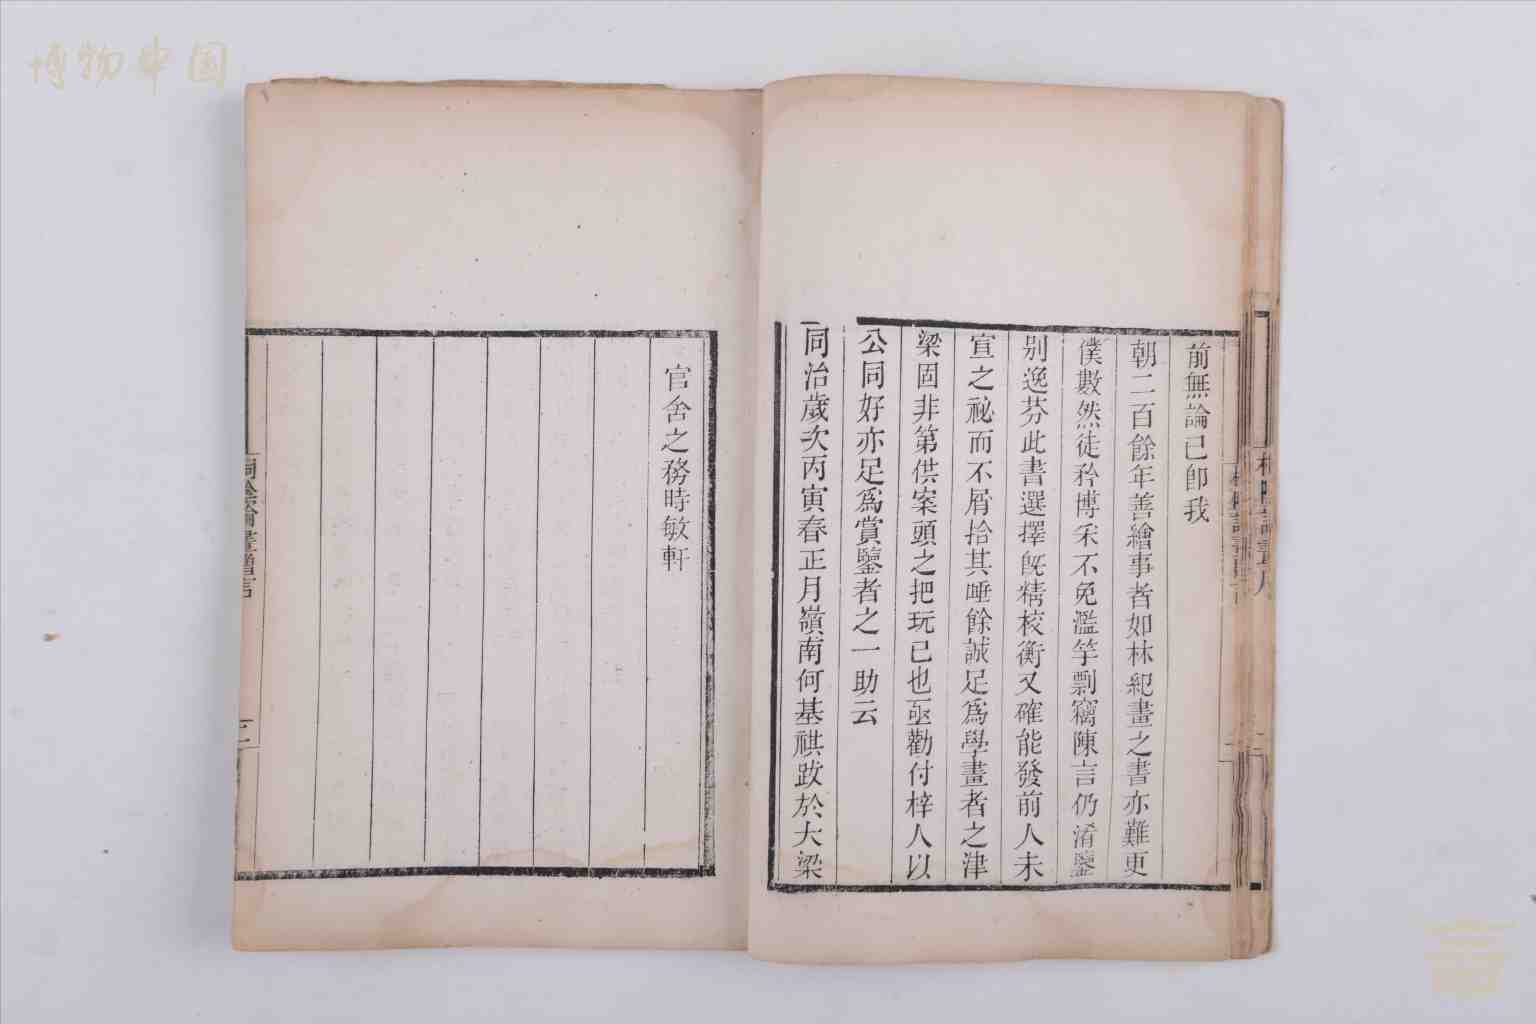 博物中国
前無論已卽我
朝二百餘年善繪事者如林紀畫之書亦難更
僕數然徒矜博采不免濫竽剽竊陳言仍淆鑒
别逸芬此書選擇旣精校衡又確能發前人未
宣之祕而不屑拾其唾餘誠足爲學畫者之津
梁固非第供案頭之把玩已也亟勸付梓人以
公同好亦足爲賞鑒者之一助云
同治歲次丙寅春正月嶺南何基祺跋於大梁
官舍之務時敏軒
桐陰論畫贈言
三